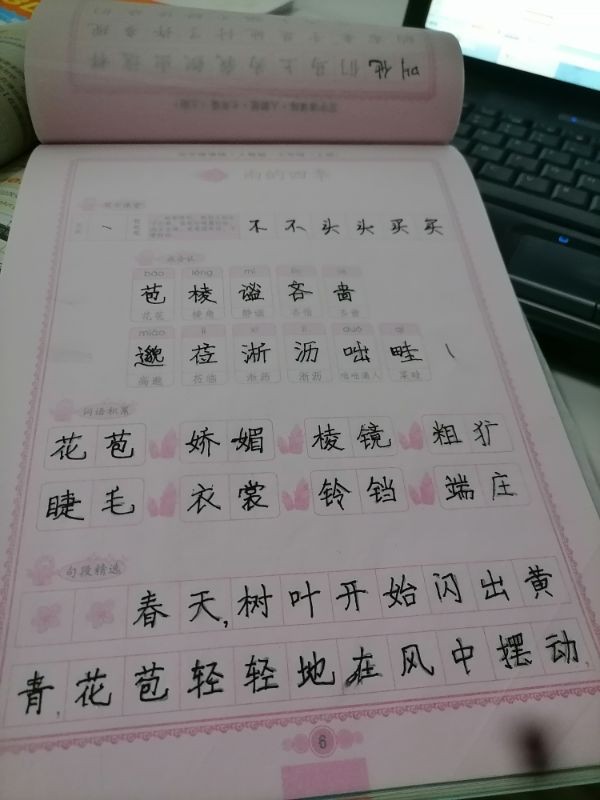 叫他们马上为我做出这样
雨的四季
不 不 头 头 买 买
我会认
bāo léng mì lìn sè
苞 棱 谧 吝 啬
花苞 棱角 静谧 吝惜 吝啬
miǎo lì xī lì duō qí
邈 莅 淅 沥 咄 畦
高邈 莅临 淅沥 淅沥 咄咄逼人 菜畦
词语积累
花苞 娇媚 棱镜 粗犷
睫毛 衣裳 铃铛 端庄
句段精选
春天,树叶开始闪出黄
青,花苞轻轻地在风中摆动,
6